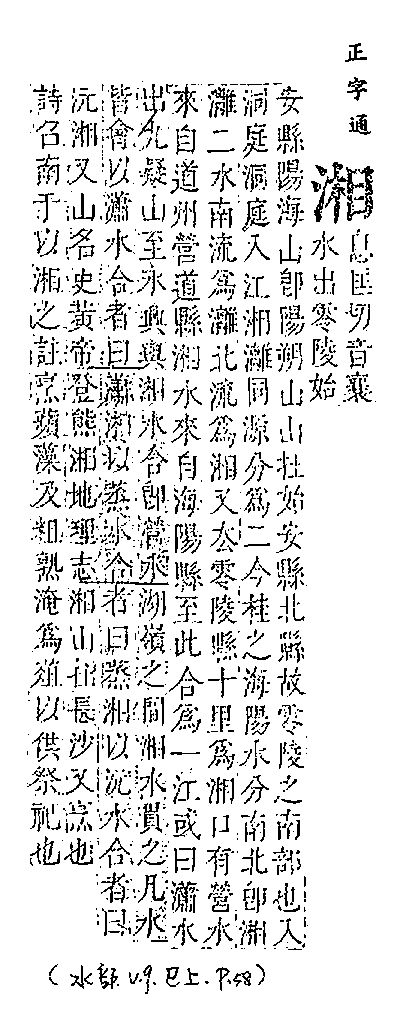 正字通
湘
息匡切音襄
水出零陵始
安縣陽海山卽陽朔山山在始安縣北縣故零陵之南部也入
洞庭洞庭入江湘灕同源分為二今桂之海陽水分南北卽湘
灕二水南流為灕北流為湘又去零陵縣十里為湘口有營水
來自道州營道縣湘水來自海陽縣至此合為一江或曰瀟水
出九疑山至永興與湘水合卽營水湖嶺之間湘水貫之凡水
皆會以瀟水合者曰瀟湘以蒸水合者曰蒸湘以沅水合者曰
沅湘又山名史黃帝登熊湘地理志湘山在長沙又烹也
詩召南于以湘之註烹蘋藻及粗熟淹為葅以供祭祀也
(水部 V.9. 巳上. P.58)